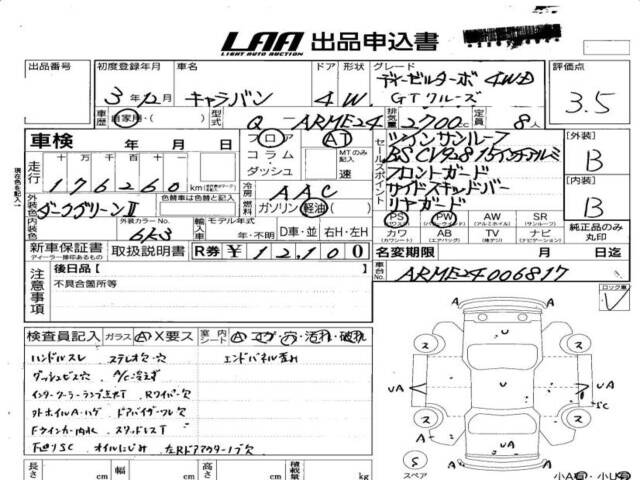 LAA 出品申込書
LIGHT AUTO AUCTION
出品番号 初度登録年月 車名 ドア 形状 グレード 評価点
3年12月 キャラバン 4 W. ディーゼルターボ 4WD
GTクルーズ 3.5
車歴 自家用・( ) 型式 Q-ARME24 排気量 2700cc 定員 8人
車検 年 月 日 フロア AT ツインサンルーフ [外装]
コラム MTのみ記入 B
ダッシュ 速
セールスポイント
フロントガード
サイドステップバー [内装]
リヤガード B
走行 十万千百十一
176260 km
冷房 AAC
燃料 ガソリン 軽油 ( )
外装色 ダークグリーンⅡ 色替車は色替前の色
内装色 外装カラーNo. 6K3 輸入車 モデル年式 年・不明 D車・並 右H・左H
PS PW AW SR
(パワーウィンドー) (アルミホイル) (サンルーフ)
カワ AB TV ナビ
(カワシート) (エアバッグ) (後テレ) (ナビゲーション)
純正品のみ丸印
新車保証書 取扱説明書 R券 ¥12,100
ディーラー印あるもの
名変期限 月 日迄
車台No. ARME24006817
注意事項 後日品【 】
不具合箇所等
ロック車
検査員記入 ガラス A X要ス 室内 シート A コゲ・穴・汚れ・破れ
ハンドルスレ ステレオ欠・穴 エンドパネル歪み
ダッシュビス穴 A/C冷えず
インタークーラーランプ点灯 Rワイパー欠
アルミホイルA・ハゲ ドアバイザーフル欠
Fウインカー内水 スタッドレスT
下回りSC オイルにじみ 左Rドアアウターノブ欠
A A
U
ス ス
UA A UA
SC
ス ス
A A A
S
スペア
長さ cm 幅 cm 高さ cm 積載量 kg
小A有・小U有